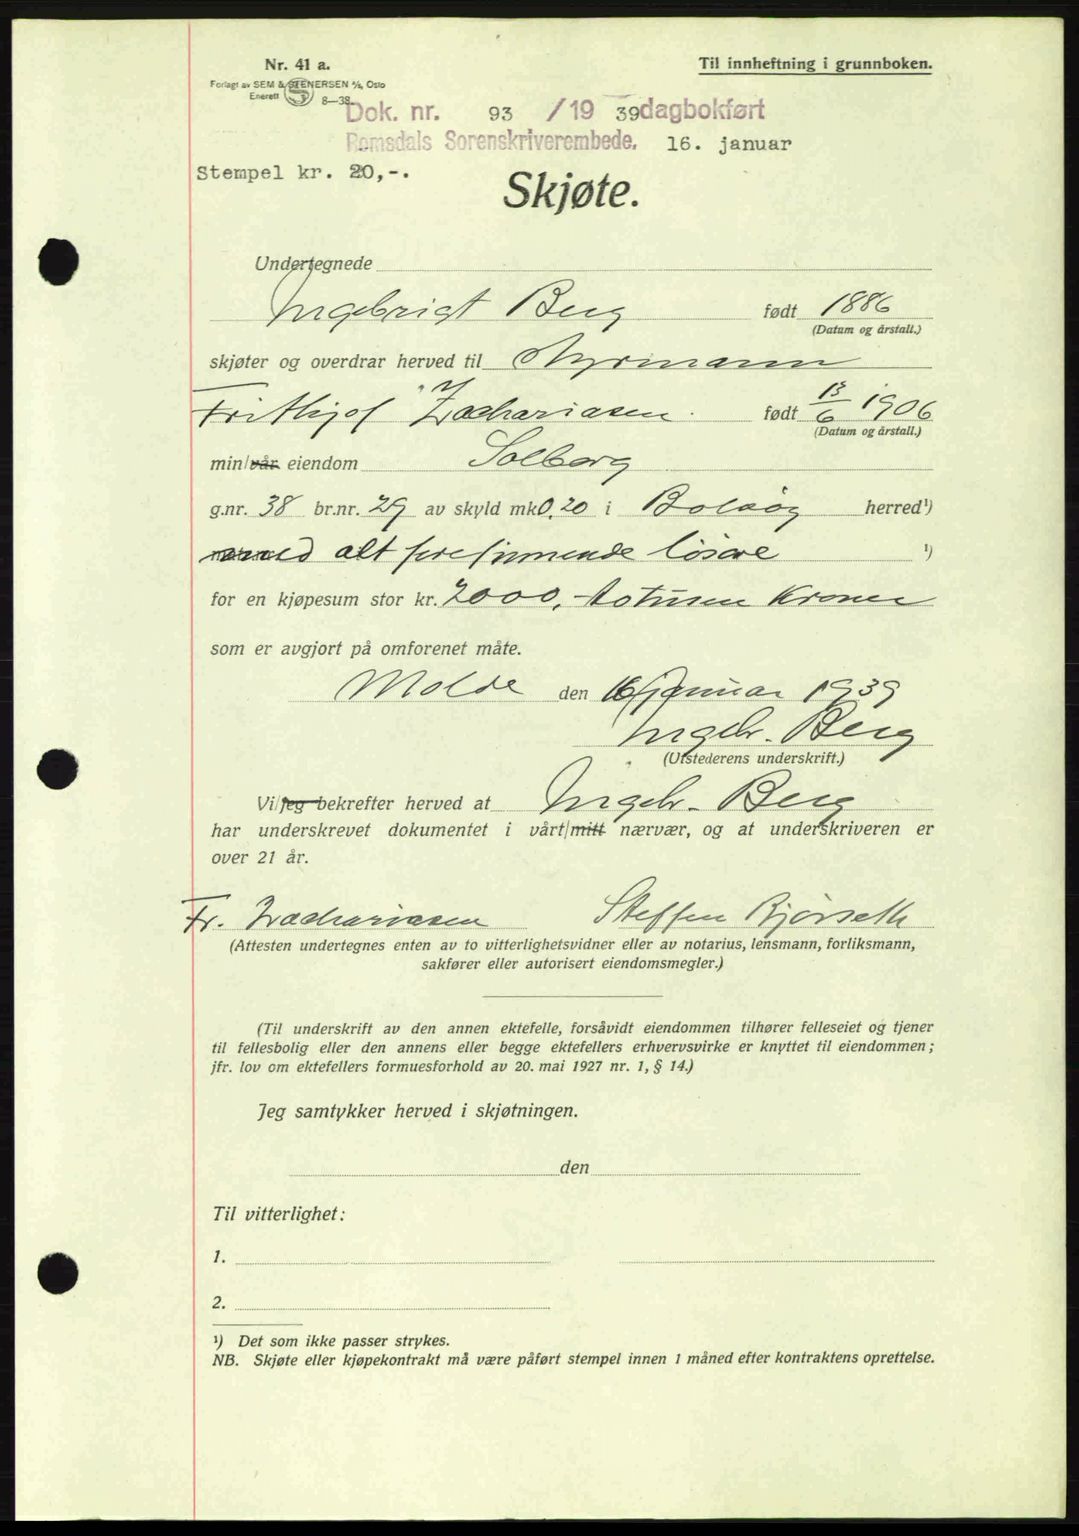 Nr. 41 a.
Til innheftning i grunnboken.
Forlagt av SEM & STENERSEN A/S, Oslo
Enerett 8—38.
Dok. nr. 93 /19 39 dagbokført
Romsdals Sorenskriverembede. 16. januar
Stempel kr. 20,-.
Skjøte.
Undertegnede
Ingebrigt Berg født 1886
(Datum og årstall.)
skjøter og overdrar herved til Styrmann
Frithjof Zachariasen. født 13/6 1906
(Datum og årstall.)
min/vår eiendom Solberg
g.nr. 38 br.nr. 29 av skyld mk 0,20 i Bolsøy herred¹)
med alt forefinnende løsøre ¹)
for en kjøpesum stor kr. 2000,- totusen Kroner
som er avgjort på omforenet måte.
Molde den 16/januar 1939
Ingebr. Berg
(Utstederens underskrift.)
Vi/jeg bekrefter herved at Ingebr. Berg
har underskrevet dokumentet i vårt/mitt nærvær, og at underskriveren er
over 21 år.
Fr. Zachariasen Steffen Bjørseth
(Attesten undertegnes enten av to vitterlighetsvidner eller av notarius, lensmann, forliksmann,
sakfører eller autorisert eiendomsmegler.)
(Til underskrift av den annen ektefelle, forsåvidt eiendommen tilhører felleseiet og tjener
til fellesbolig eller den annens eller begge ektefellers erhvervsvirke er knyttet til eiendommen;
jfr. lov om ektefellers formuesforhold av 20. mai 1927 nr. 1, § 14.)
Jeg samtykker herved i skjøtningen.
den
Til vitterlighet:
1.
2.
¹) Det som ikke passer strykes.
NB. Skjøte eller kjøpekontrakt må være påført stempel innen 1 måned efter kontraktens oprettelse.